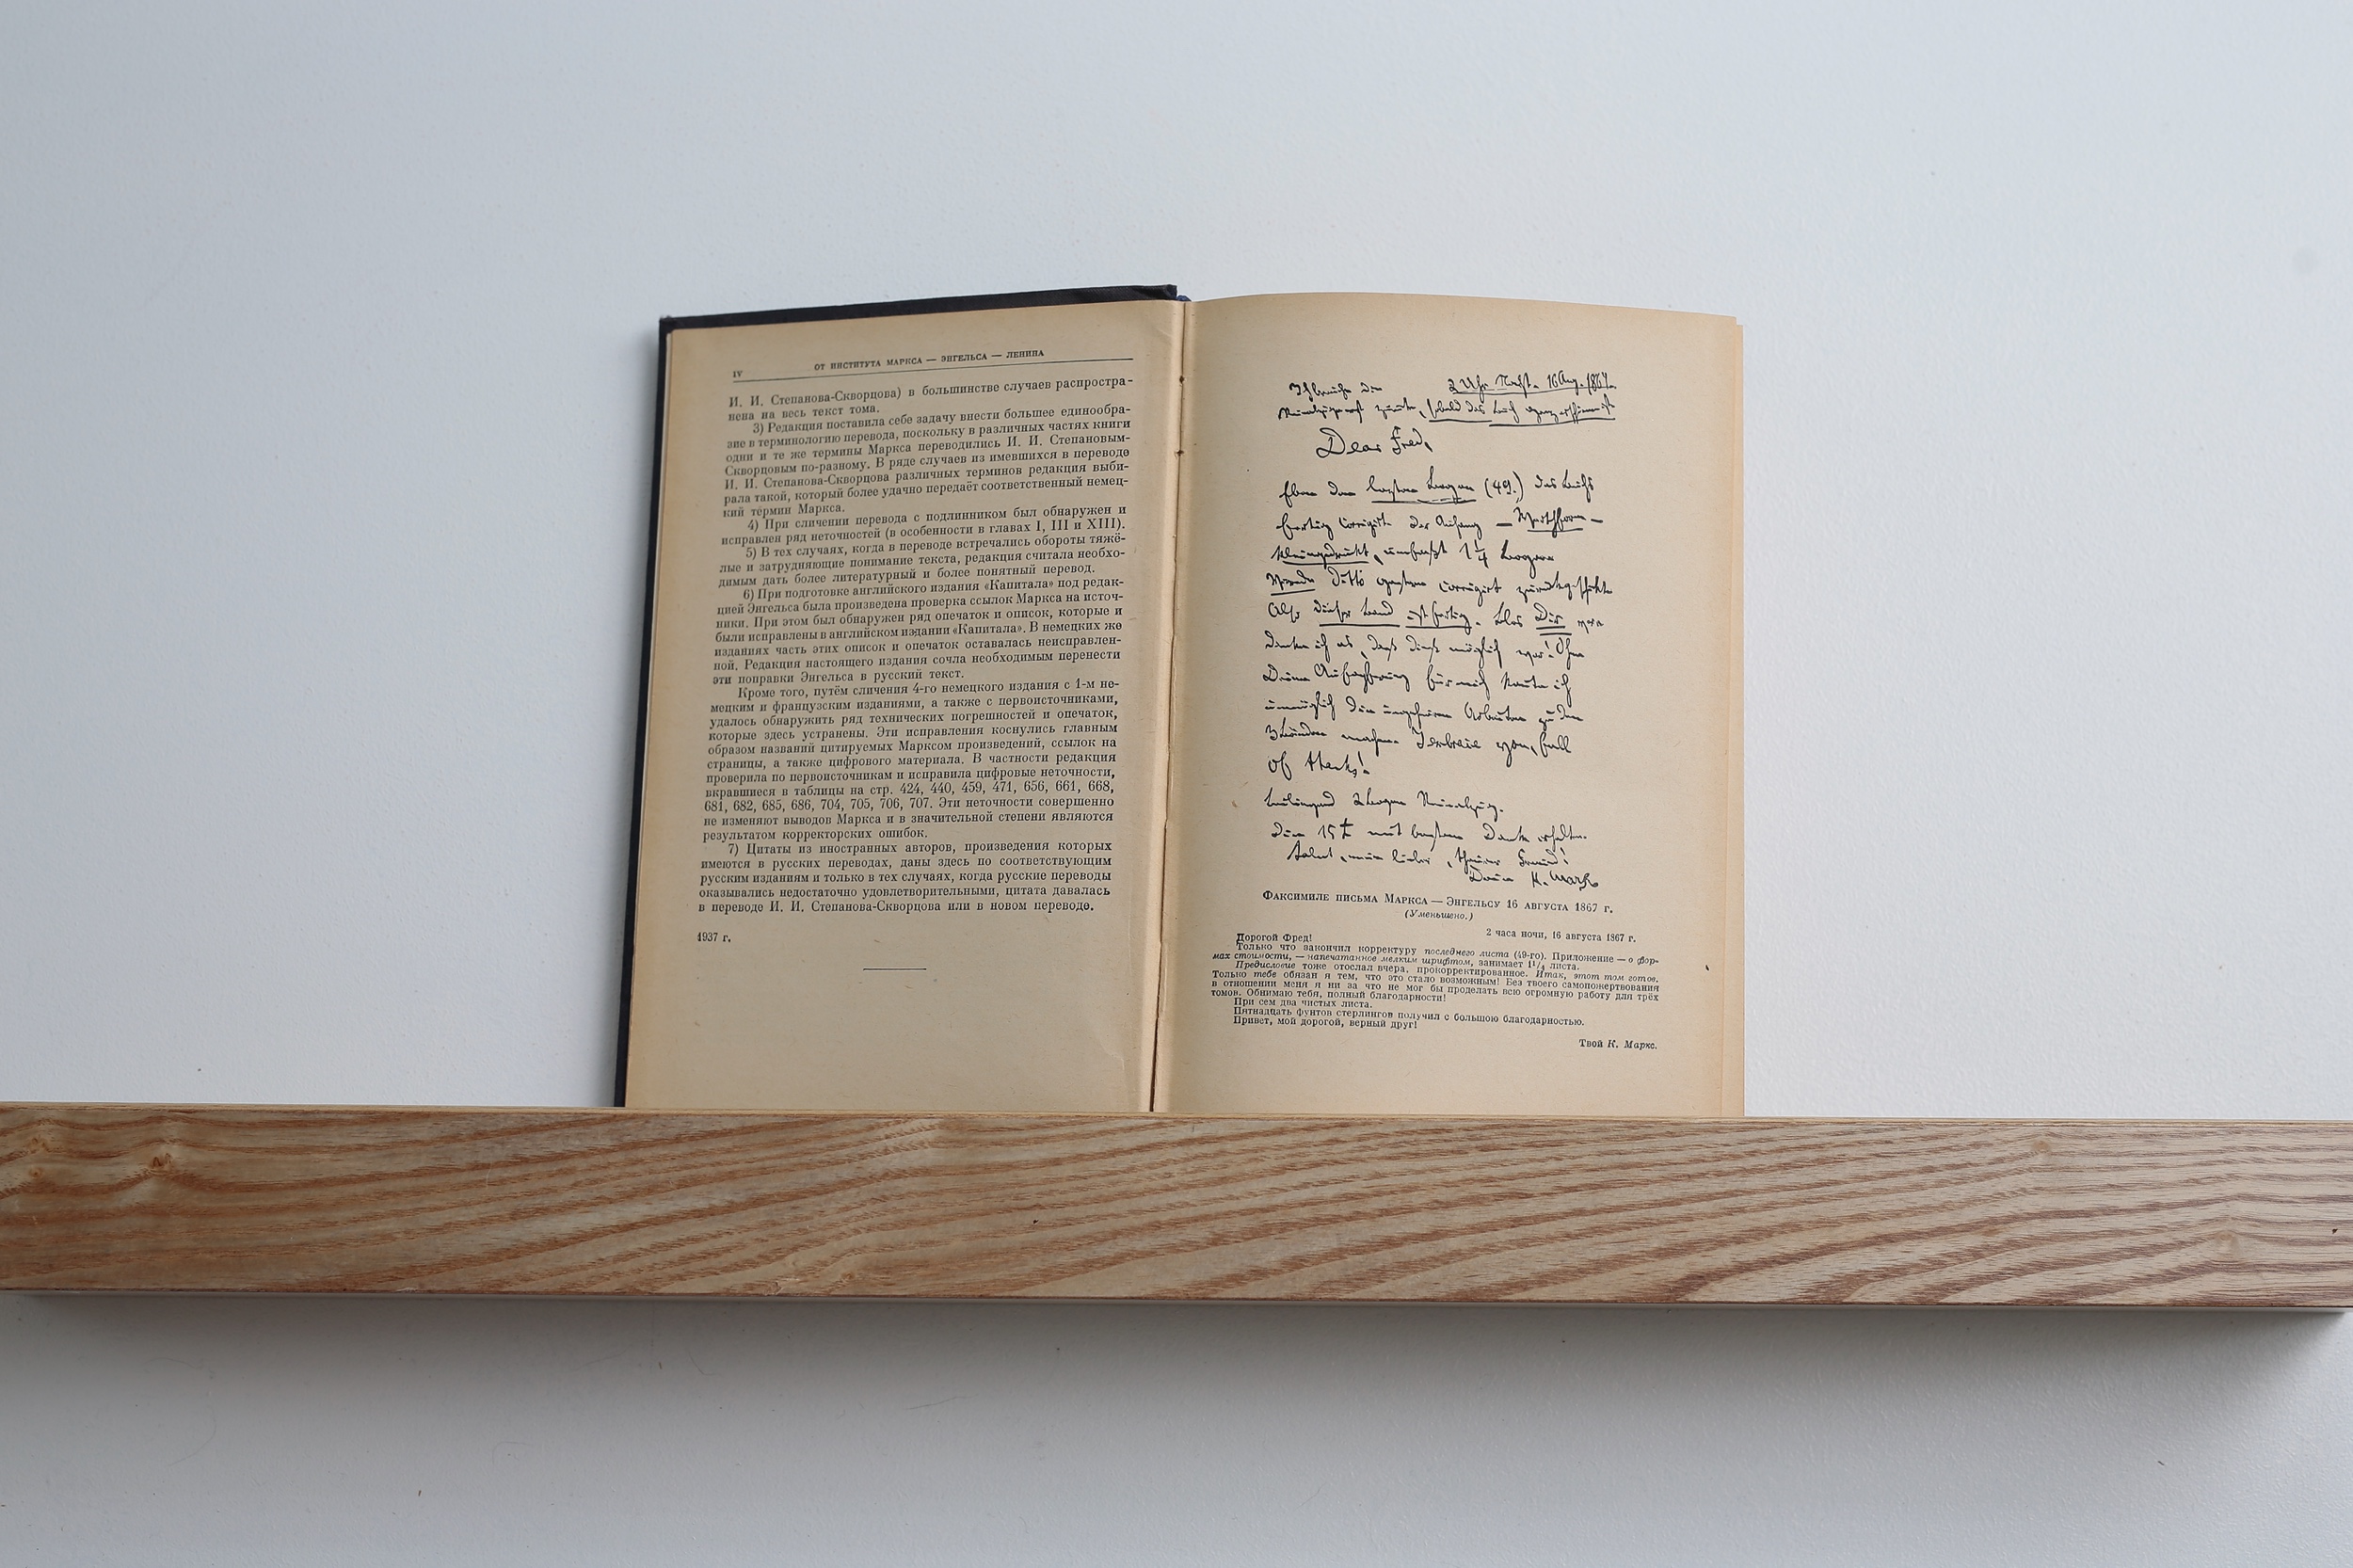 IV
ОТ ИНСТИТУТА МАРКСА — ЭНГЕЛЬСА — ЛЕНИНА
И. И. Степанова-Скворцова) в большинстве случаев распростра-
нена на весь текст тома.
3) Редакция поставила себе задачу внести большее единообра-
зие в терминологию перевода, поскольку в различных частях книги
одни и те же термины Маркса переводились И. И. Степановым-
Скворцовым по-разному. В ряде случаев из имевшихся в переводе
И. И. Степанова-Скворцова различных терминов редакция выби-
рала такой, который более удачно передаёт соответственный немец-
кий термин Маркса.
4) При сличении перевода с подлинником был обнаружен и
исправлен ряд неточностей (в особенности в главах I, III и XIII).
5) В тех случаях, когда в переводе встречались обороты тяжё-
лые и затрудняющие понимание текста, редакция считала необхо-
димым дать более литературный и более понятный перевод.
6) При подготовке английского издания «Капитала» под редак-
цией Энгельса была произведена проверка ссылок Маркса на источ-
ники. При этом был обнаружен ряд опечаток и описок, которые и
были исправлены в английском издании «Капитала». В немецких же
изданиях часть этих описок и опечаток оставалась неисправлен-
ной. Редакция настоящего издания сочла необходимым перенести
эти поправки Энгельса в русский текст.
Кроме того, путём сличения 4-го немецкого издания с 1-м не-
мецким и французским изданиями, а также с первоисточниками,
удалось обнаружить ряд технических погрешностей и опечаток,
которые здесь устранены. Эти исправления коснулись главным
образом названий цитируемых Марксом произведений, ссылок на
страницы, а также цифрового материала. В частности редакция
проверила по первоисточникам и исправила цифровые неточности,
вкравшиеся в таблицы на стр. 424, 440, 459, 471, 656, 661, 668,
681, 682, 685, 686, 704, 705, 706, 707. Эти неточности совершенно
не изменяют выводов Маркса и в значительной степени являются
результатом корректорских ошибок.
7) Цитаты из иностранных авторов, произведения которых
имеются в русских переводах, даны здесь по соответствующим
русским изданиям и только в тех случаях, когда русские переводы
оказывались недостаточно удовлетворительными, цитата давалась
в переводе И. И. Степанова-Скворцова или в новом переводе.
1937 г.
2 Uhr Nacht. 16 Aug. 1867.
Dear Fred,
Eben den letzten Bogen (49.) des Buchs
fertig corrigirt. Der Anhang — Werthform —
kleingedruckt, umfaßt 1¼ Bogen.
Vorrede ditto gestern corrigirt zurückgeschickt.
Also dieser Band ist fertig. Blos Dir
danke ich es, daß dieß möglich war! Ohne
Deine Aufopferung für mich konnte ich
unmöglich die ungeheuren Arbeiten zu den
3 Bänden machen. I embrace you, full
of thanks!
Beiliegend 2 Bogen Reinabzug.
Die 15 £ mit bestem Dank erhalten.
Salut, mein lieber, theurer Freund!
Dein K. Marx
Факсимиле письма Маркса — Энгельсу 16 августа 1867 г.
(Уменьшено.)
2 часа ночи, 16 августа 1867 г.
Дорогой Фред!
Только что закончил корректуру последнего листа (49-го). Приложение — о фор-
мах стоимости, — напечатанное мелким шрифтом, занимает 1¹/₄ листа.
Предисловие тоже отослал вчера, прокорректированное. Итак, этот том готов.
Только тебе обязан я тем, что это стало возможным! Без твоего самопожертвования
в отношении меня я ни за что не мог бы проделать всю огромную работу для трёх
томов. Обнимаю тебя, полный благодарности!
При сем два чистых листа.
Пятнадцать фунтов стерлингов получил с большою благодарностью.
Привет, мой дорогой, верный друг!
Твой К. Маркс.